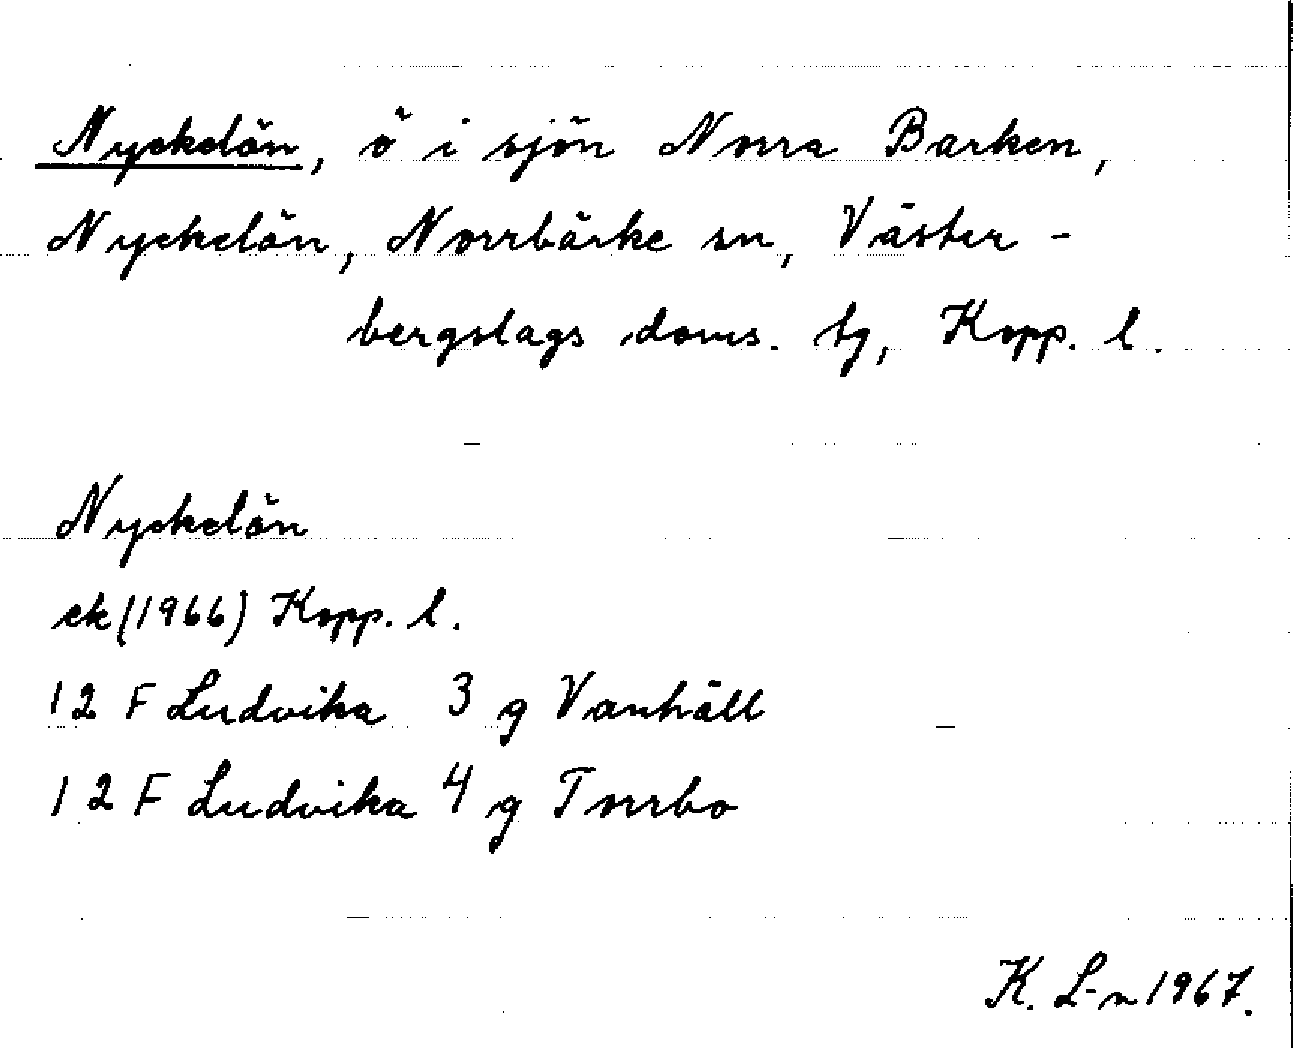 Nyckelön, ö i sjön Norra Barken,
Nyckelön, Norrbärke sn, Väster-
bergslags doms. tg, Kopp. l.
Nyckelön
ek (1966) Kopp. l.
12 F Ludvika 3 g Vanhäll
12 F Ludvika 4 g Torrbo
K. L-n 1967.